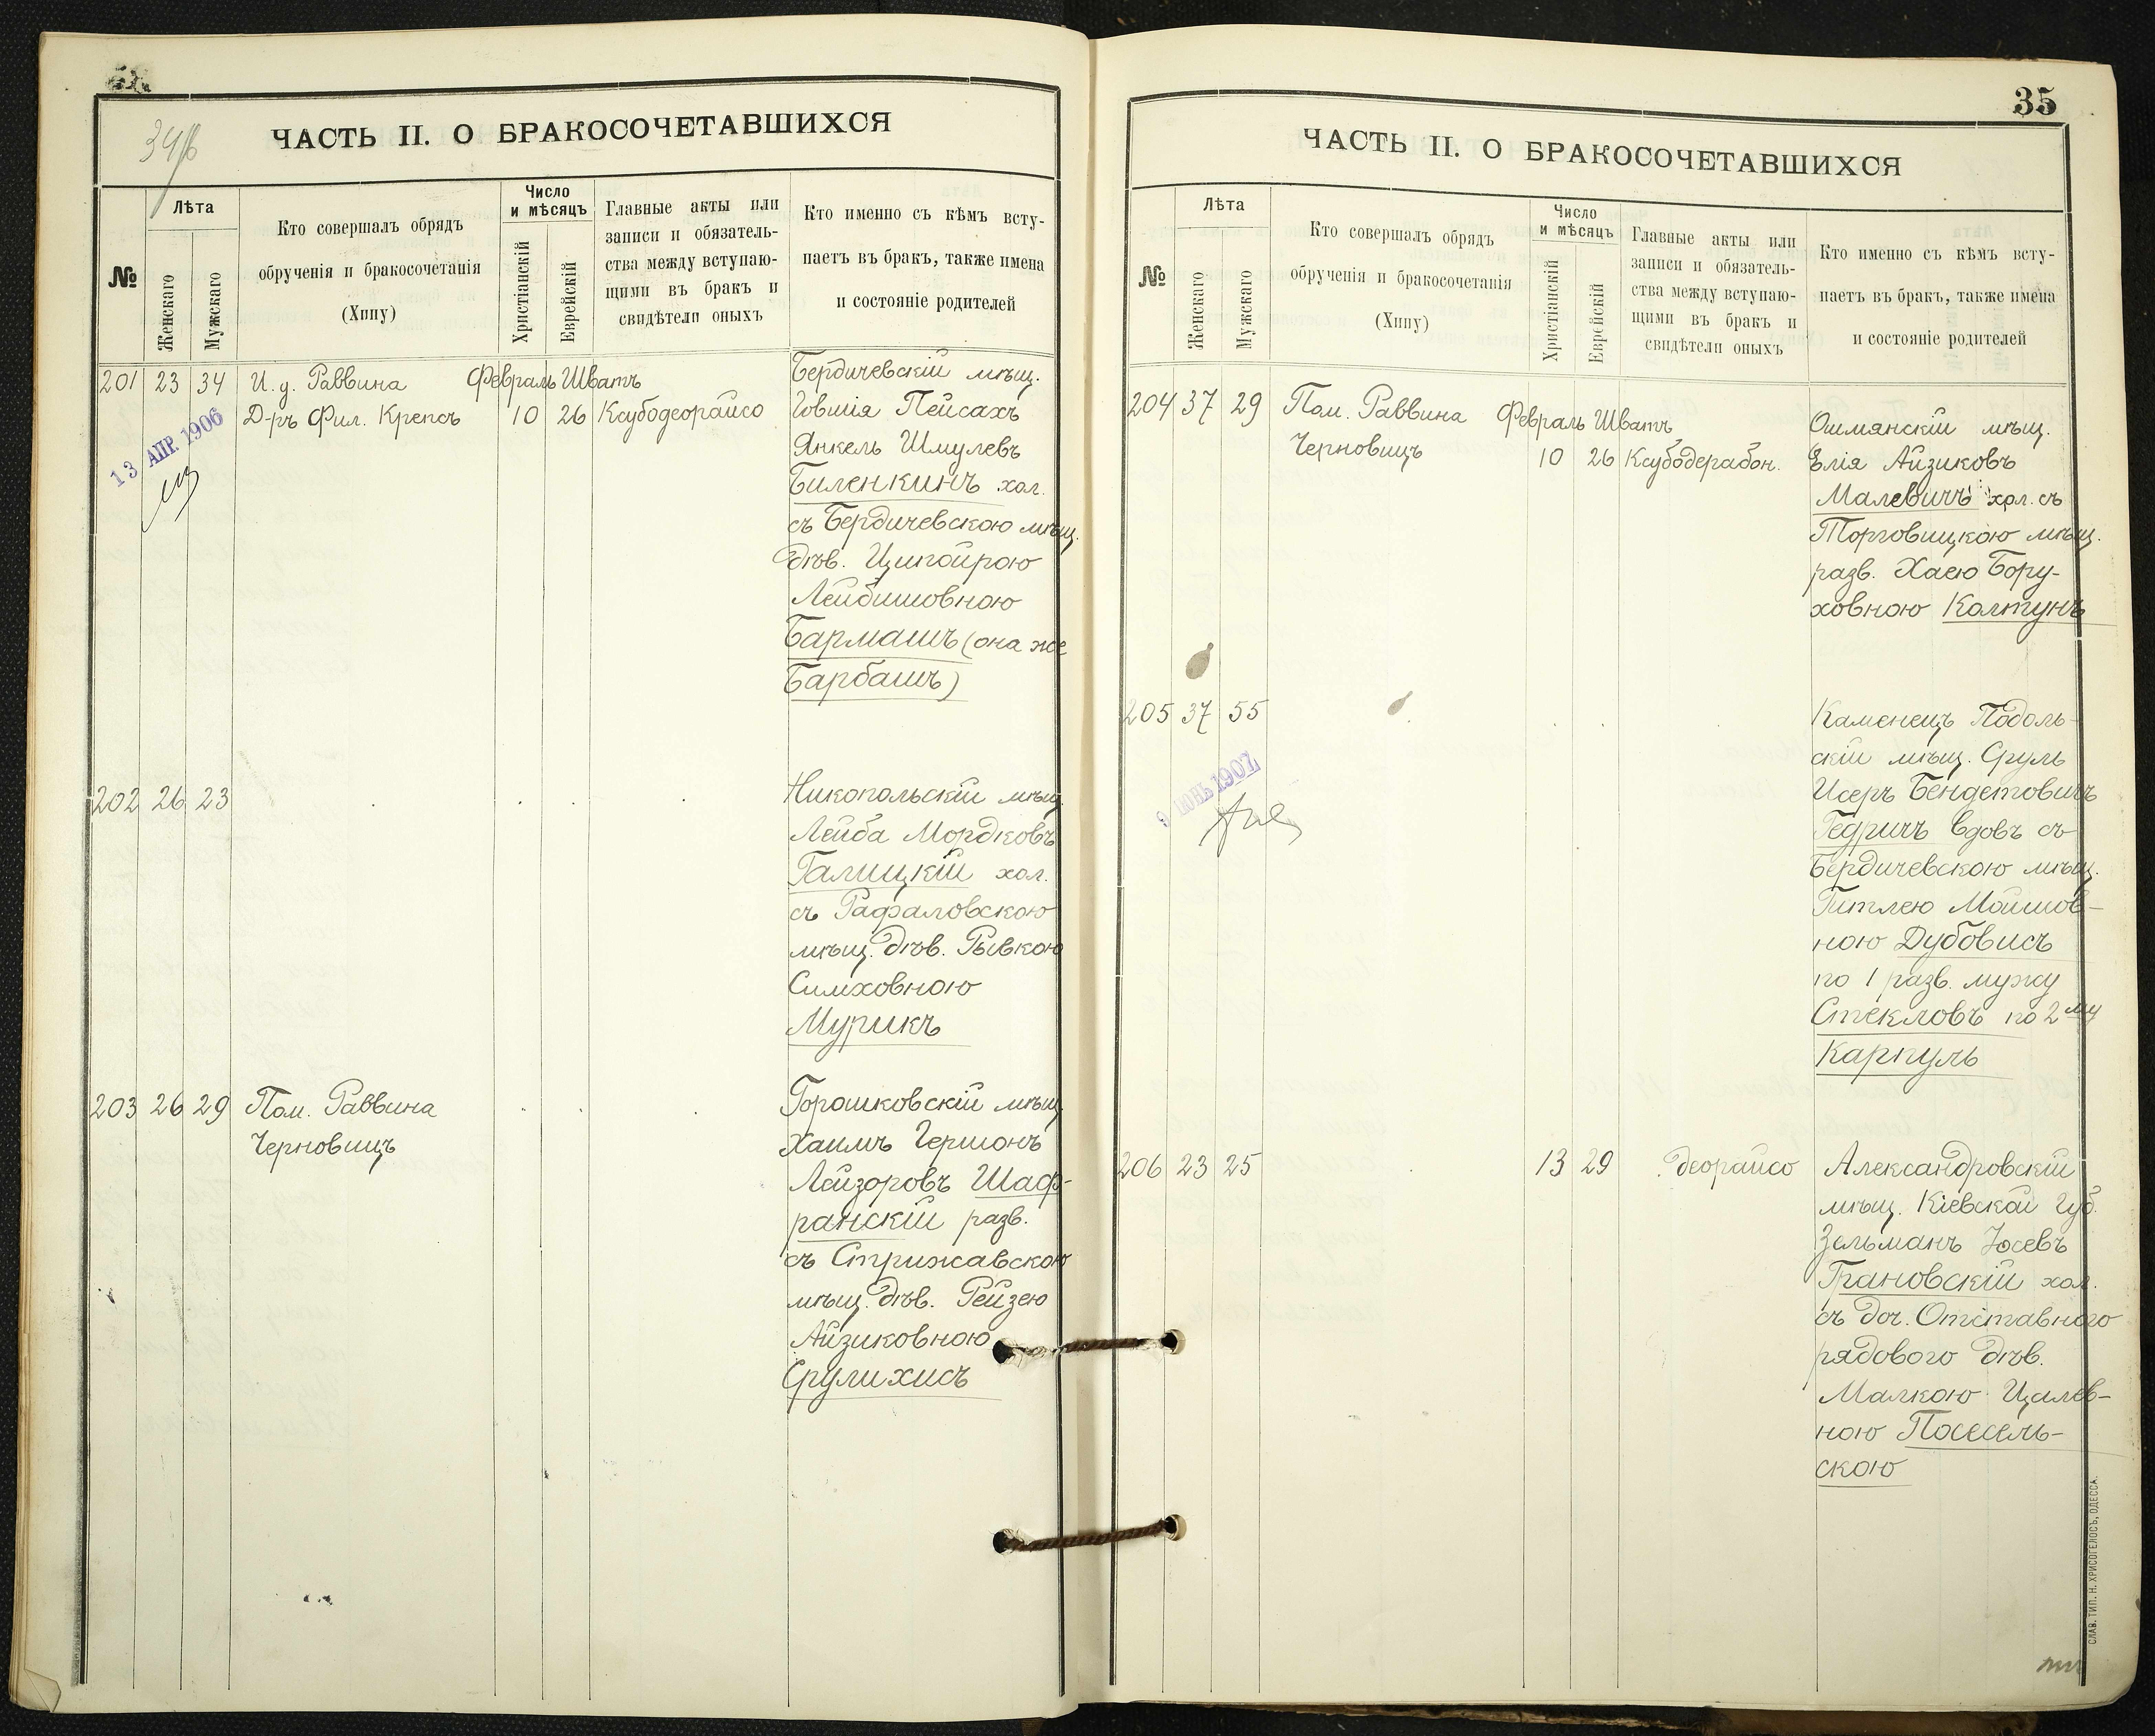 34/б
ЧАСТЬ II. О БРАКОСОЧЕТАВШИХСЯ
№
Лѣта
Женскаго
Мужскаго
Кто совершалъ обрядъ
обрученія и бракосочетанія
(Хипу)
Число
и мѣсяцъ
Христіанскій
Еврейскій
Главные акты или
записи и обязатель-
ства между вступаю-
щими въ бракъ и
свидѣтели оныхъ
Кто именно съ кѣмъ всту-
паетъ въ бракъ, также имена
и состояніе родителей
201 23 34 И. д. Раввина Февраль Шватъ
Д-ръ Фил. Крепсъ 10 26 Ксубодеорайсо
13 АПР. 1906
Бердичевскій мѣщ.
Говшія Пейсахъ
Янкель Шмулевъ
Биленкинъ хол.
съ Бердичевскою мѣщ.
дѣв. Ципойрою
Лейбишовною
Бармашъ (она же
Барбашъ)
202 26 23
Никопольскій мѣщ.
Лейба Мордковъ
Галицкій хол.
съ Рафаловскою
мѣщ. дѣв. Рывкою
Симховною
Мурикъ
203 26 29 Пом. Раввина
Черновицъ
Горошковскій мѣщ.
Хаимъ Гершонъ
Лейзоровъ Шаф-
ранскій разв.
съ Стрижавскою
мѣщ. дѣв. Рейзею
Айзиковною
Срулихисъ
35
ЧАСТЬ II. О БРАКОСОЧЕТАВШИХСЯ
№
Лѣта
Женскаго
Мужскаго
Кто совершалъ обрядъ
обрученія и бракосочетанія
(Хипу)
Число
и мѣсяцъ
Христіанскій
Еврейскій
Главные акты или
записи и обязатель-
ства между вступаю-
щими въ бракъ и
свидѣтели оныхъ
Кто именно съ кѣмъ всту-
паетъ въ бракъ, также имена
и состояніе родителей
204 37 29 Пом. Раввина Февраль Шватъ
Черновицъ 10 26 Ксубодерабон.
Ошмянскій мѣщ.
Элія Айзиковъ
Малевичъ хол. съ
Торговицкою мѣщ.
разв. Хаею Бору-
ховною Колтунъ
205 37 55
9 ІЮНЬ 1907
Каменецъ Подоль-
скій мѣщ. Сруль
Исеръ Бендетовичъ
Гедричъ вдовъ съ
Бердичевскою мѣщ.
Гитлею Мойшов-
ною Дубовисъ
по 1 разв. мужу
Стекловъ по 2му
Карпуль
206 23 25 13 29 деорайсо
Александровскій
мѣщ. Кіевской губ.
Зельманъ Іосевъ
Грановскій хол.
съ доч. Отставного
рядового дѣв.
Малкою Цилев-
ною Посесель-
скою
СЛАВ. ТИП. Н. ХРИСОГЕЛОСЪ, ОДЕССА.